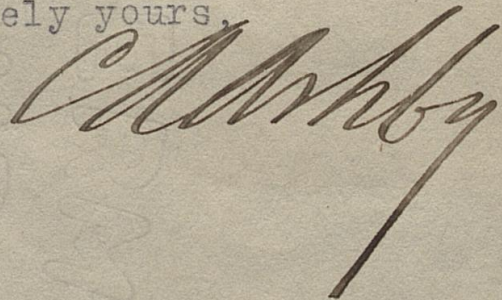 ely yours,
C R Ashby